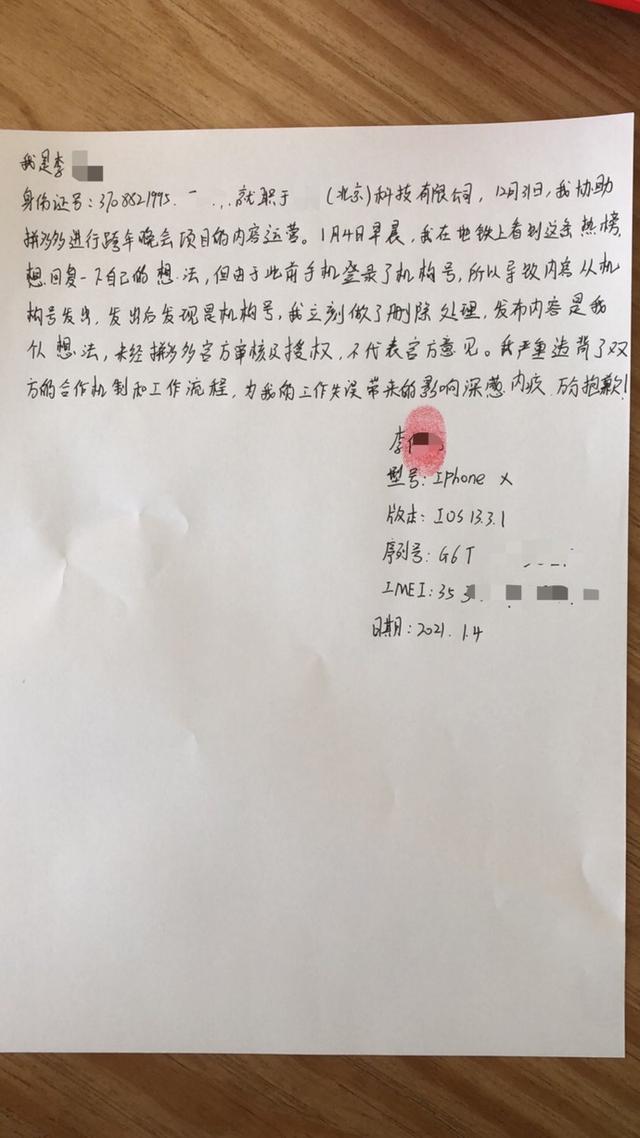 我是李
身份证号：3708821995. 就职于 （北京）科技有限公司，12月31日，我协助
拼多多进行跨年晚会项目的内容运营。1月4日早晨，我在地铁上看到这条热榜，
想回复一下自己的想法，但由于此前手机登录了机构号，所以导致内容从机
构号发出，发出后发现是机构号，我立刻做了删除处理，发布内容是我
个人想法，未经拼多多官方审核及授权，不代表官方意见。我严重违背了双
方的合作机制和工作流程，为我的工作失误带来的影响深感内疚 万分抱歉！
李
型号：Iphone X
版本：IOS 13.3.1
序列号：G6T
IMEI：35
日期：2021.1.4